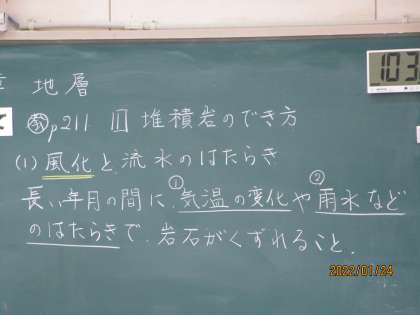 地層
教p211 1 堆積岩のでき方
(1)風化と流水のはたらき
長い年月の間に、①気温の変化や②雨水など
のはたらきで、岩石がくずれること.
103
2022/01/24